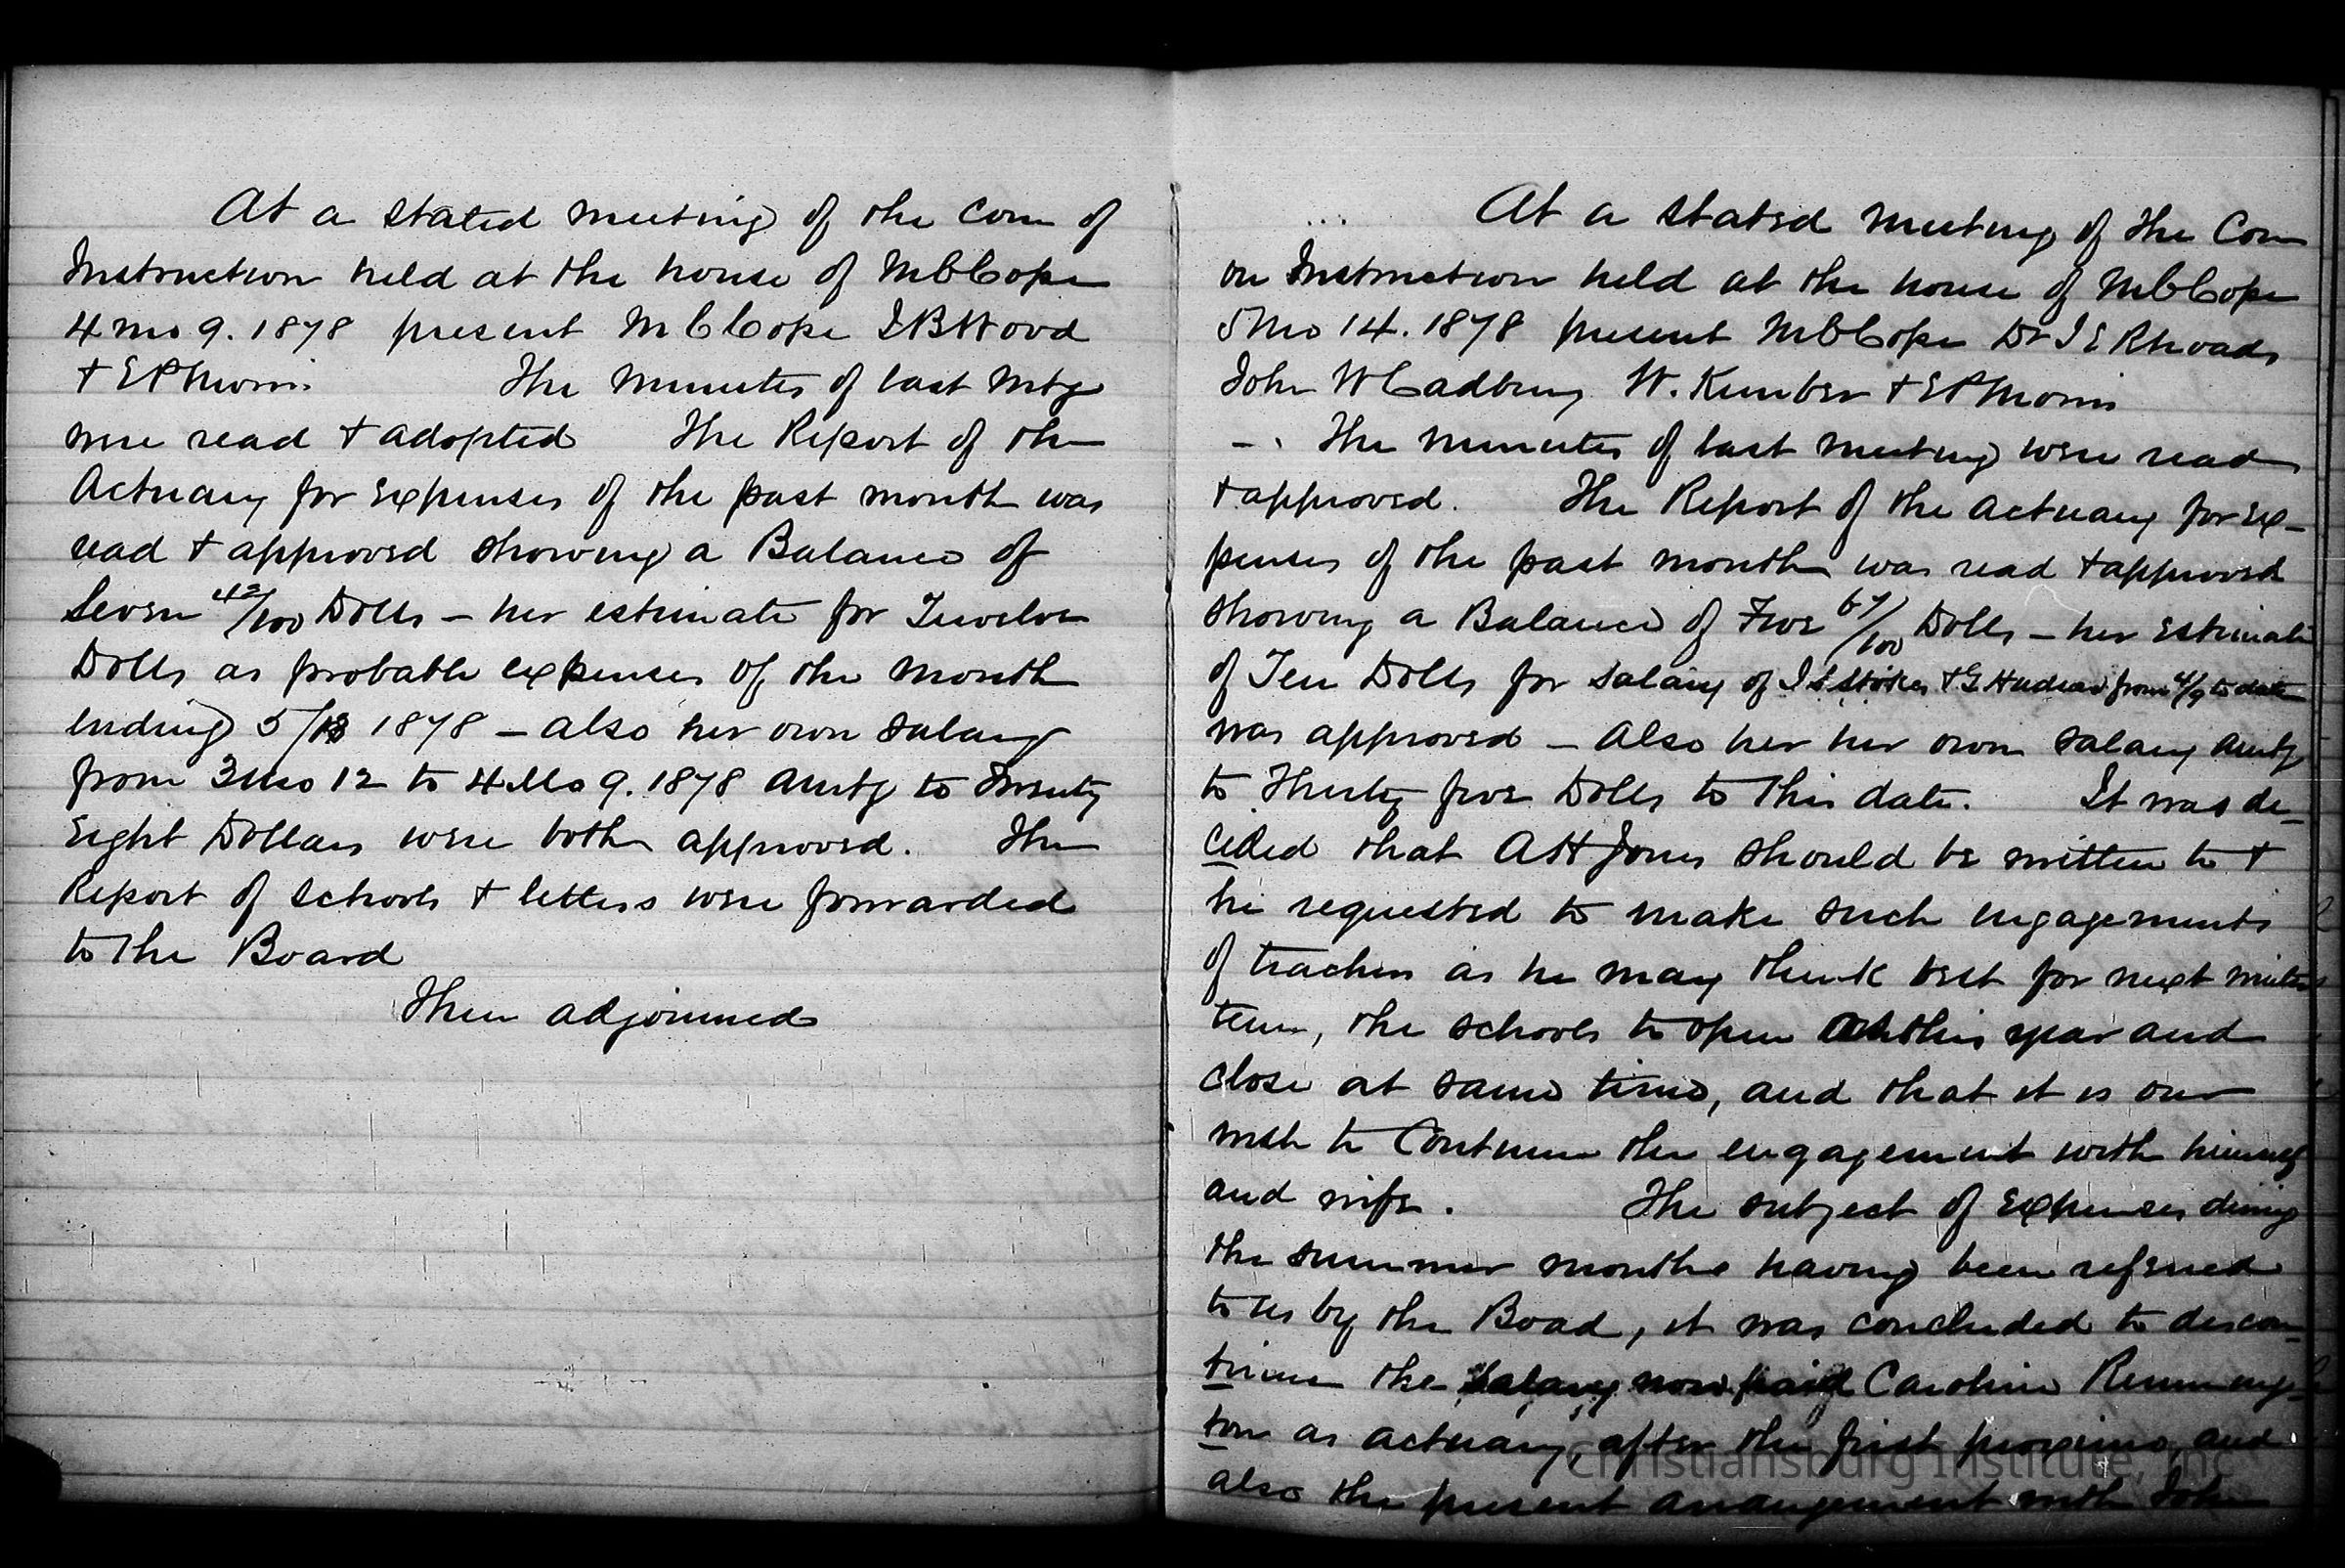 At a stated meeting of the Com of
Instruction held at the house of M C Cope
4 mo 9. 1878 present M C Cope I B Wood
+ E P Morris The Minutes of last Mtg
were read + adopted The Report of the
Actuary for Expenses of the past month was
read + approved showing a Balance of
Seven 42/100 Dolls – her estimate for Twelve
Dolls as probable expenses of the Month
ending 5/13 1878 – also her own salary
from 3 mo 12 to 4 Mo 9. 1878 amtg to Twenty
Eight Dollars were both approved. The
Report of schools + letters were forwarded
to the Board
Then adjourned
At a stated meeting of the Com
on Instruction held at the house of M C Cope
5 Mo 14. 1878 present M C Cope Dr J E Rhoads
John W Cadbury W. Kimber + E P Morris
The minutes of last meeting were read
+ approved. The Report of the Actuary for Ex-
penses of the past month was read + approved
showing a Balance of Five 67/100 Dolls – her Estimate
of Ten Dolls for salary of I S Stokes + G Hudson from 4/9 to date
was approved – Also her her own salary amtg
to Thirty five Dolls to this date. It was de-
cided that A H Jones should be written to +
he requested to make such engagements
of teachers as he may think best for next winter
term, the schools to open this year and
close at same time, and that it is our
wish to Continue the engagement with himself
and wife. The subject of Expenses during
the summer months having been referred
to us by the Boad, it was concluded to discon-
tinue the salary now paid Caroline Remming-
ton as actuary, after the first proximo, and
also the present arrangement with John
Christiansburg Institute, Inc